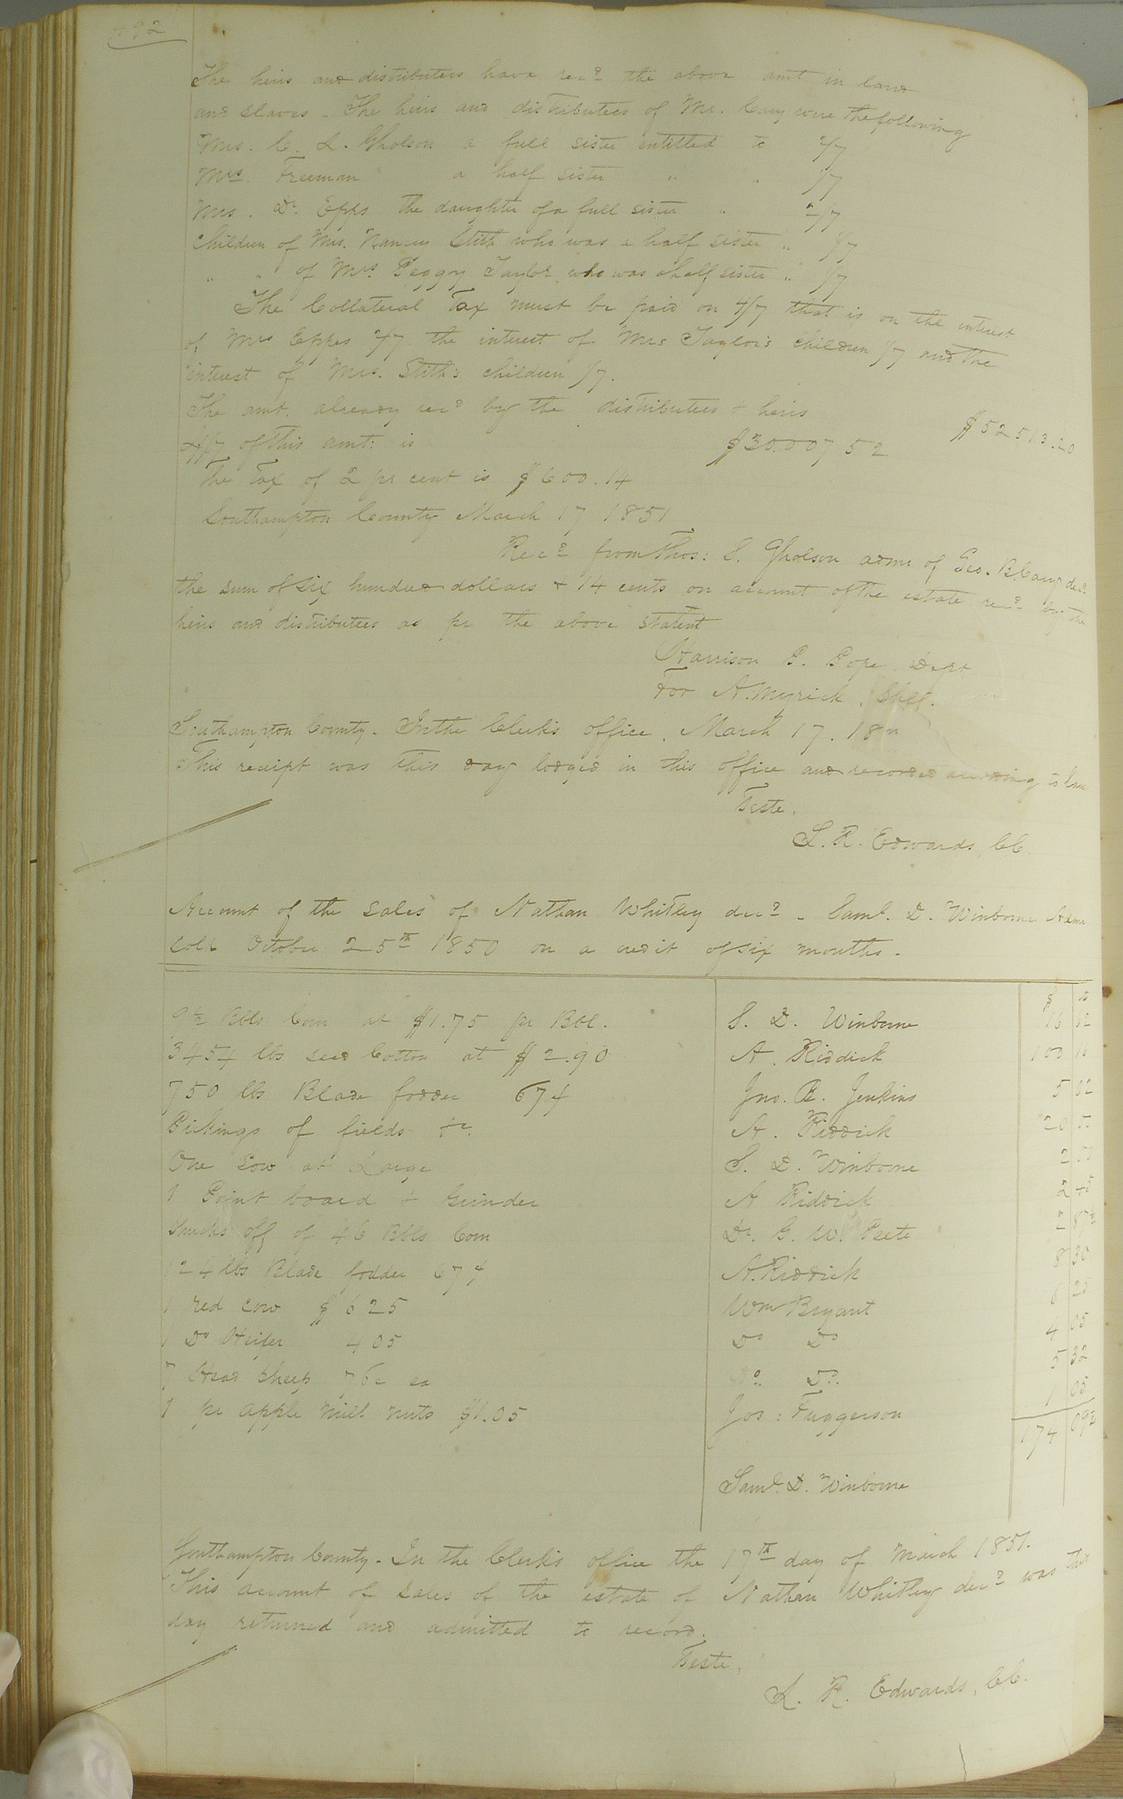 The heirs and distributees have recd the above amt in land
and slaves. The heirs and distributees of Mr. Cary were the following
Mrs. C. L. Gholson a full sister entitled to 2/7
Mrs. Freeman a half sister " " 1/7
Mrs. Dr. Epes the daughter of a full sister " 2/7
Children of Mrs. Nancy Stith who was a half sister " 1/7
" " of Mrs. Peggy Taylor who was a half sister " 1/7
The Collateral Tax must be paid on 4/7 that is on the interest
of Mrs Eppes 2/7 the interest of Mrs Taylor's children 1/7 and the
interest of Mrs. Stith's children 1/7.
The amt. already recd by the distributees & heirs $52513.20
4/7 of this amt: is $30.007 52
The Tax of 2 pr cent is $600.14
Southampton County March 17 1851
Recd from Thos: S. Gholson admr of Geo. B Cary decd.
the sum of six hundred dollars & 14 cents on account of the estate recd by the
heirs and distributees as pr the above statent
Harrison P. Pope Dept
For A. Myrick, Shff.
Southampton County. In the Clerk's office, March 17. 18
This receipt was this day lodged in this office and recorded according to law
Teste.
L. R. Edwards, CC.
Account of the sales of Nathan Whitley decd. Saml. D. Winborne Admr
sold October 25th 1850 on a credit of six months.
9½ Bbls Corn at $1.75 pr Bbl. S. D. Winborne 16 62
3454 lbs seed Cotton at $2.90 A. Riddick 100 16
750 lbs Blade fodder 67¢ Jno. R. Jenkins 5 02
Pickings of fields &c. A. Riddick 20 50
One Sow at Large S. D. Winborne 2 50
1 Point board & Grinder A Riddick 2 45
Shucks off of 46 Bbls Corn Dr. G. W. Peete
124 lbs Blade fodder 67¢ A. Riddick 8 30
1 red cow $6 25 Wm Bryant 6 25
1 Do Heifer 4 05 Do Do 4 05
7 Head sheep 76c ea Do. Do. 5 32
1 pr apple mill nuts $1.05 Jos: Fuggerson 1 05
174 09½
Saml. D. Winborne
Southampton County. In the Clerk's office the 17th day of March 1851.
This account of sales of the estate of Nathan Whitley decd was this
day returned and admitted to record.
Teste,
L. R. Edwards, CC.